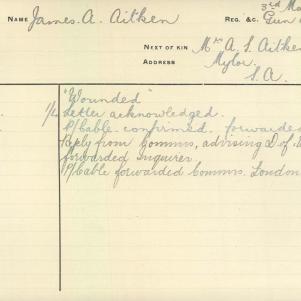 NAME James. A. Aitken
REG. &C. 3rd Ma
Gun
NEXT OF KIN Mrs A. S. Aitken
ADDRESS Mylor.
S.A.
"Wounded"
1/4 Letter acknowledged.
P/Cable confirmed forwarde
Reply from Commrs, advising D of
forwarded Inquirer
P/Cable forwarded Commrs. London